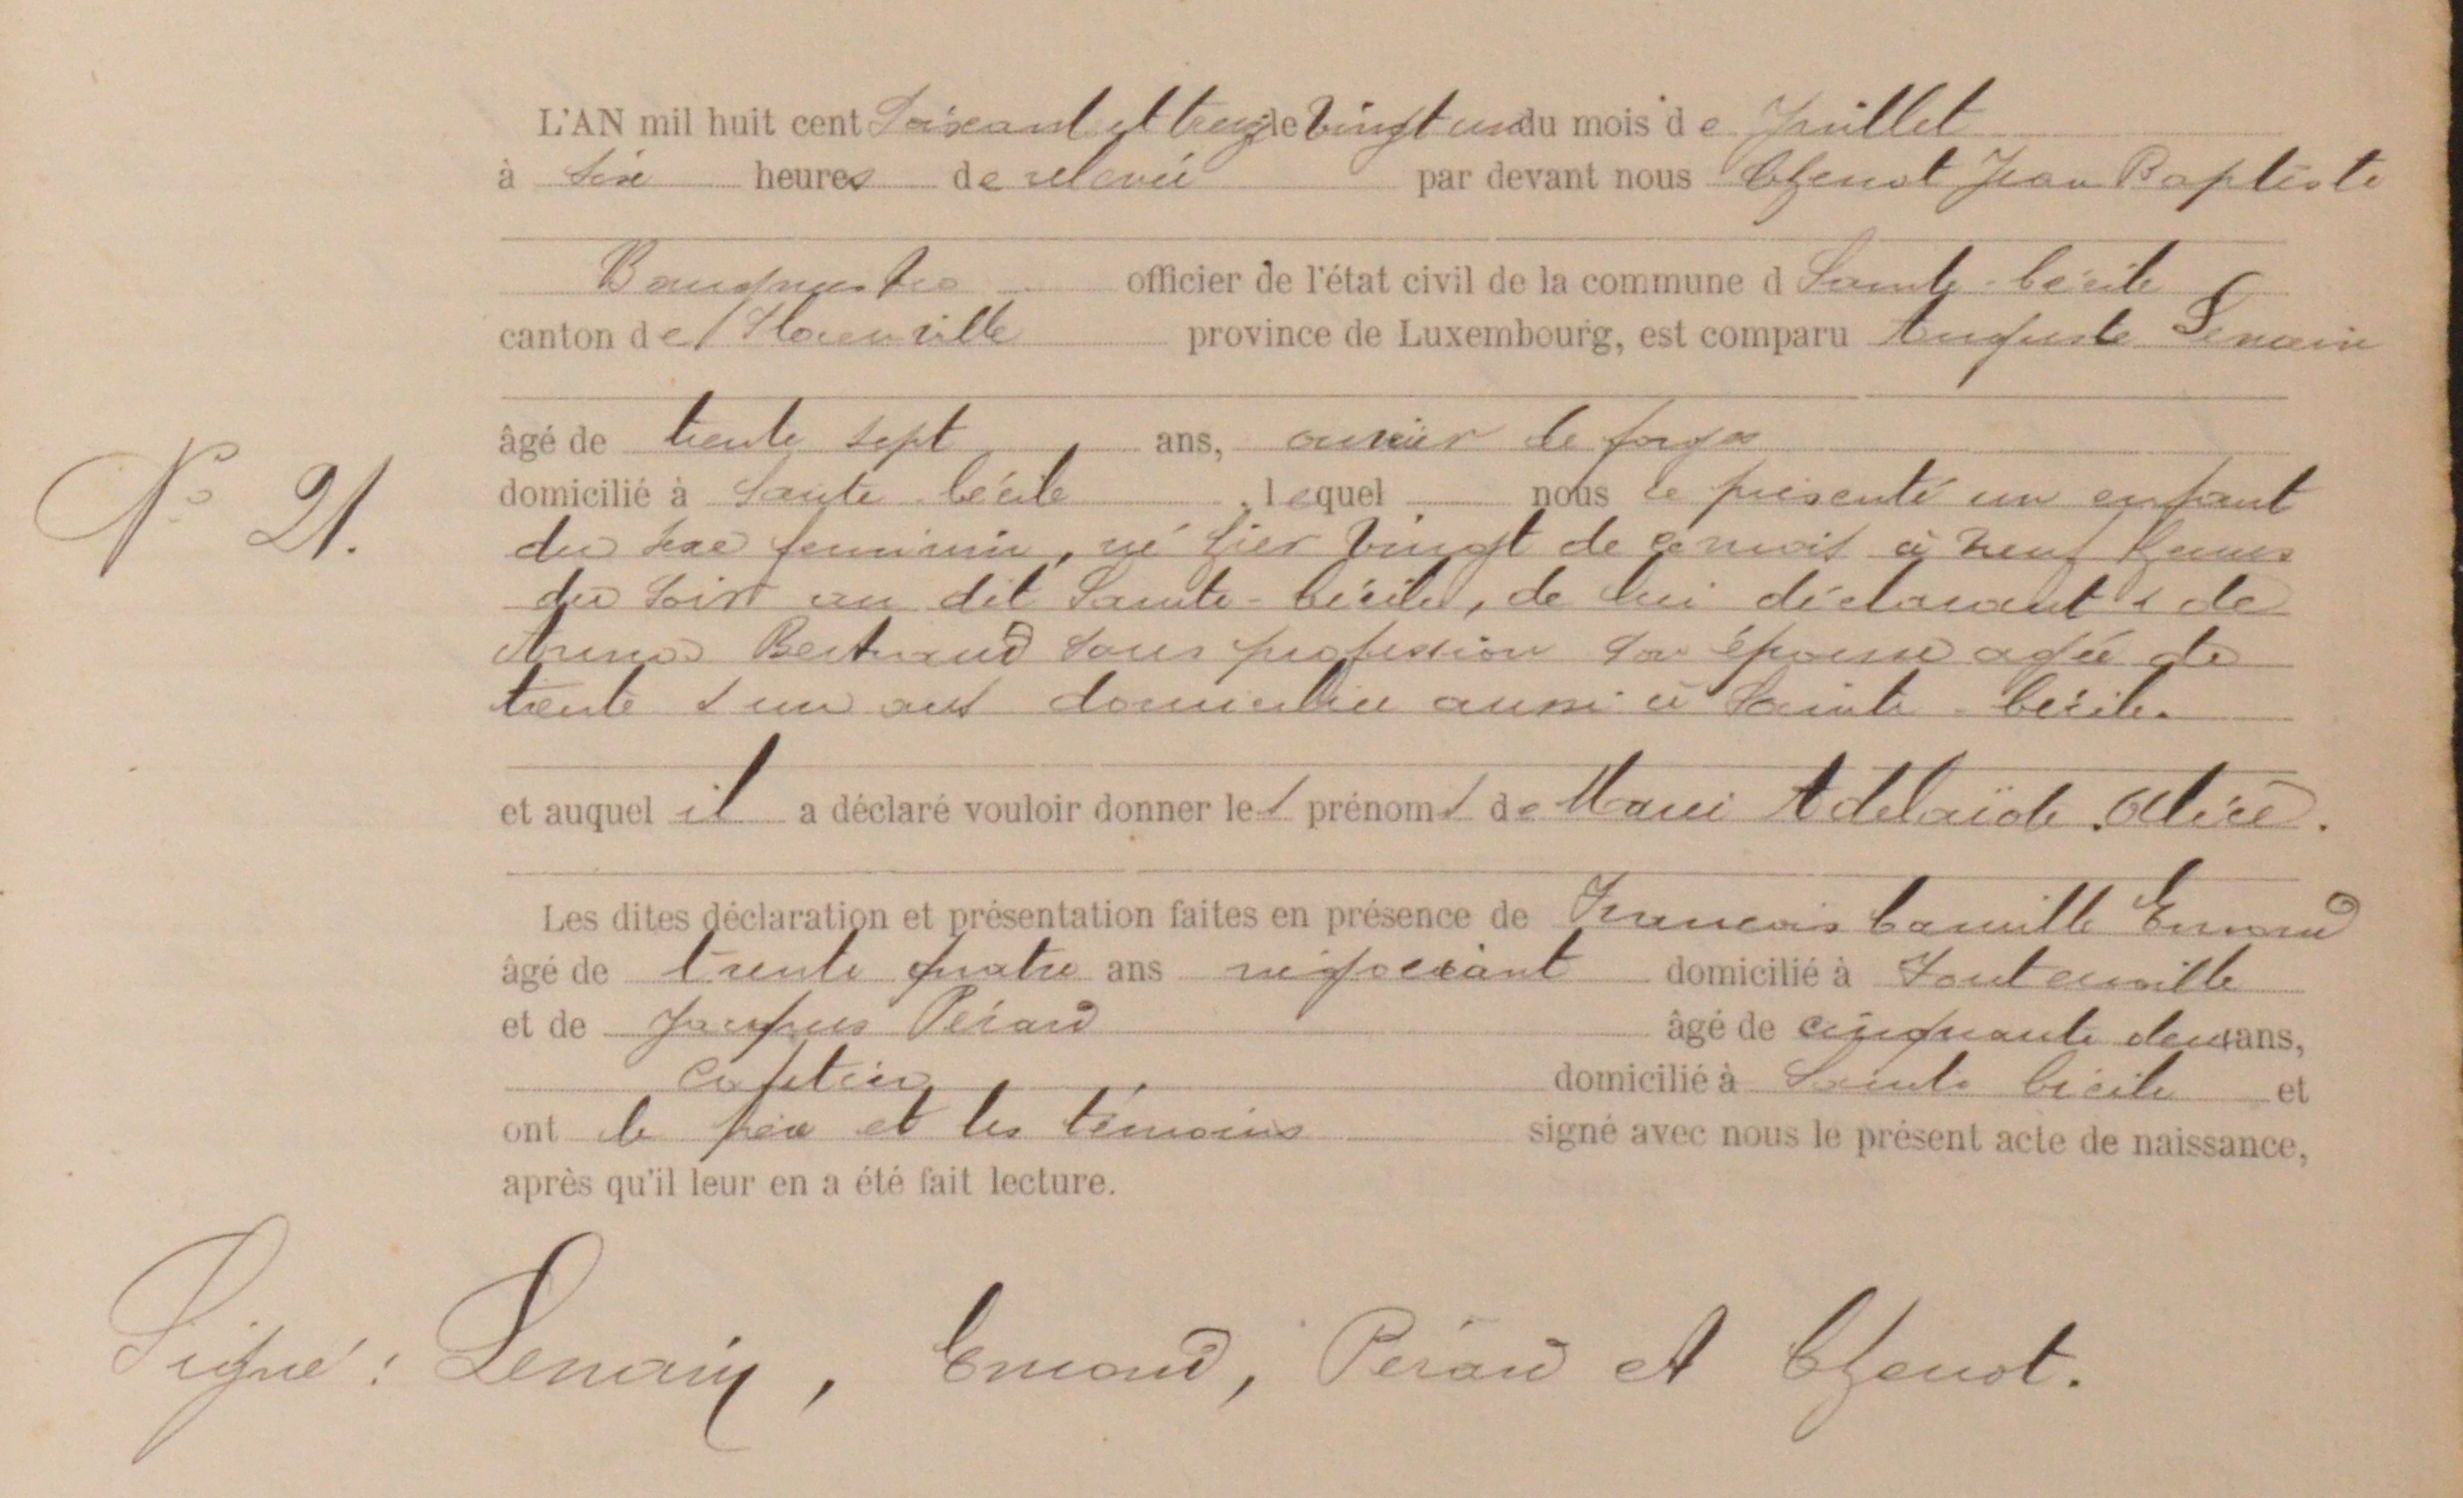 L'AN mil huit cent Soixant et treize le vingt un du mois de Juillet
à six heures de relevée par devant nous Chenot Jean Baptiste
Bourgmestre officier de l'état civil de la commune d Sainte-Cécile
canton de Florenville province de Luxembourg, est comparu Auguste Lenain
âgé de trente sept ans, ouvrier de forge
N° 21. domicilié à Sainte-Cécile, lequel nous a présenté un enfant
du sexe feminin, né hier vingt de ce mois à neuf heures
du soir au dit Sainte-Cécile, de lui déclarant & de
Bertrand sans profession son épouse agée de
trente & un ans domiciliée aussi à Sainte-Cécile.
et auquel il a déclaré vouloir donner les prénoms de Marie Adelaïde
Les dites déclaration et présentation faites en présence de Francois Camille Emond
âgé de trente quatre ans négociant domicilié à Fontenoille
et de Jacques Pérard âgé de cinquante deux ans,
cafetier domicilié à Sainte Cécile et
ont le père et les témoins signé avec nous le présent acte de naissance,
après qu'il leur en a été fait lecture.
Signé: Lenain, Emond, Pérard et Chenot.